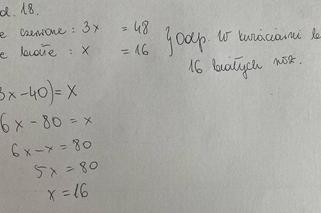 d. 18.
e czerwone : 3x = 48
e białe : x = 16
} odp. W kwiaciarni
16 białych róż.
3x - 40) = x
6x - 80 = x
6x - x = 80
5x = 80
x = 16